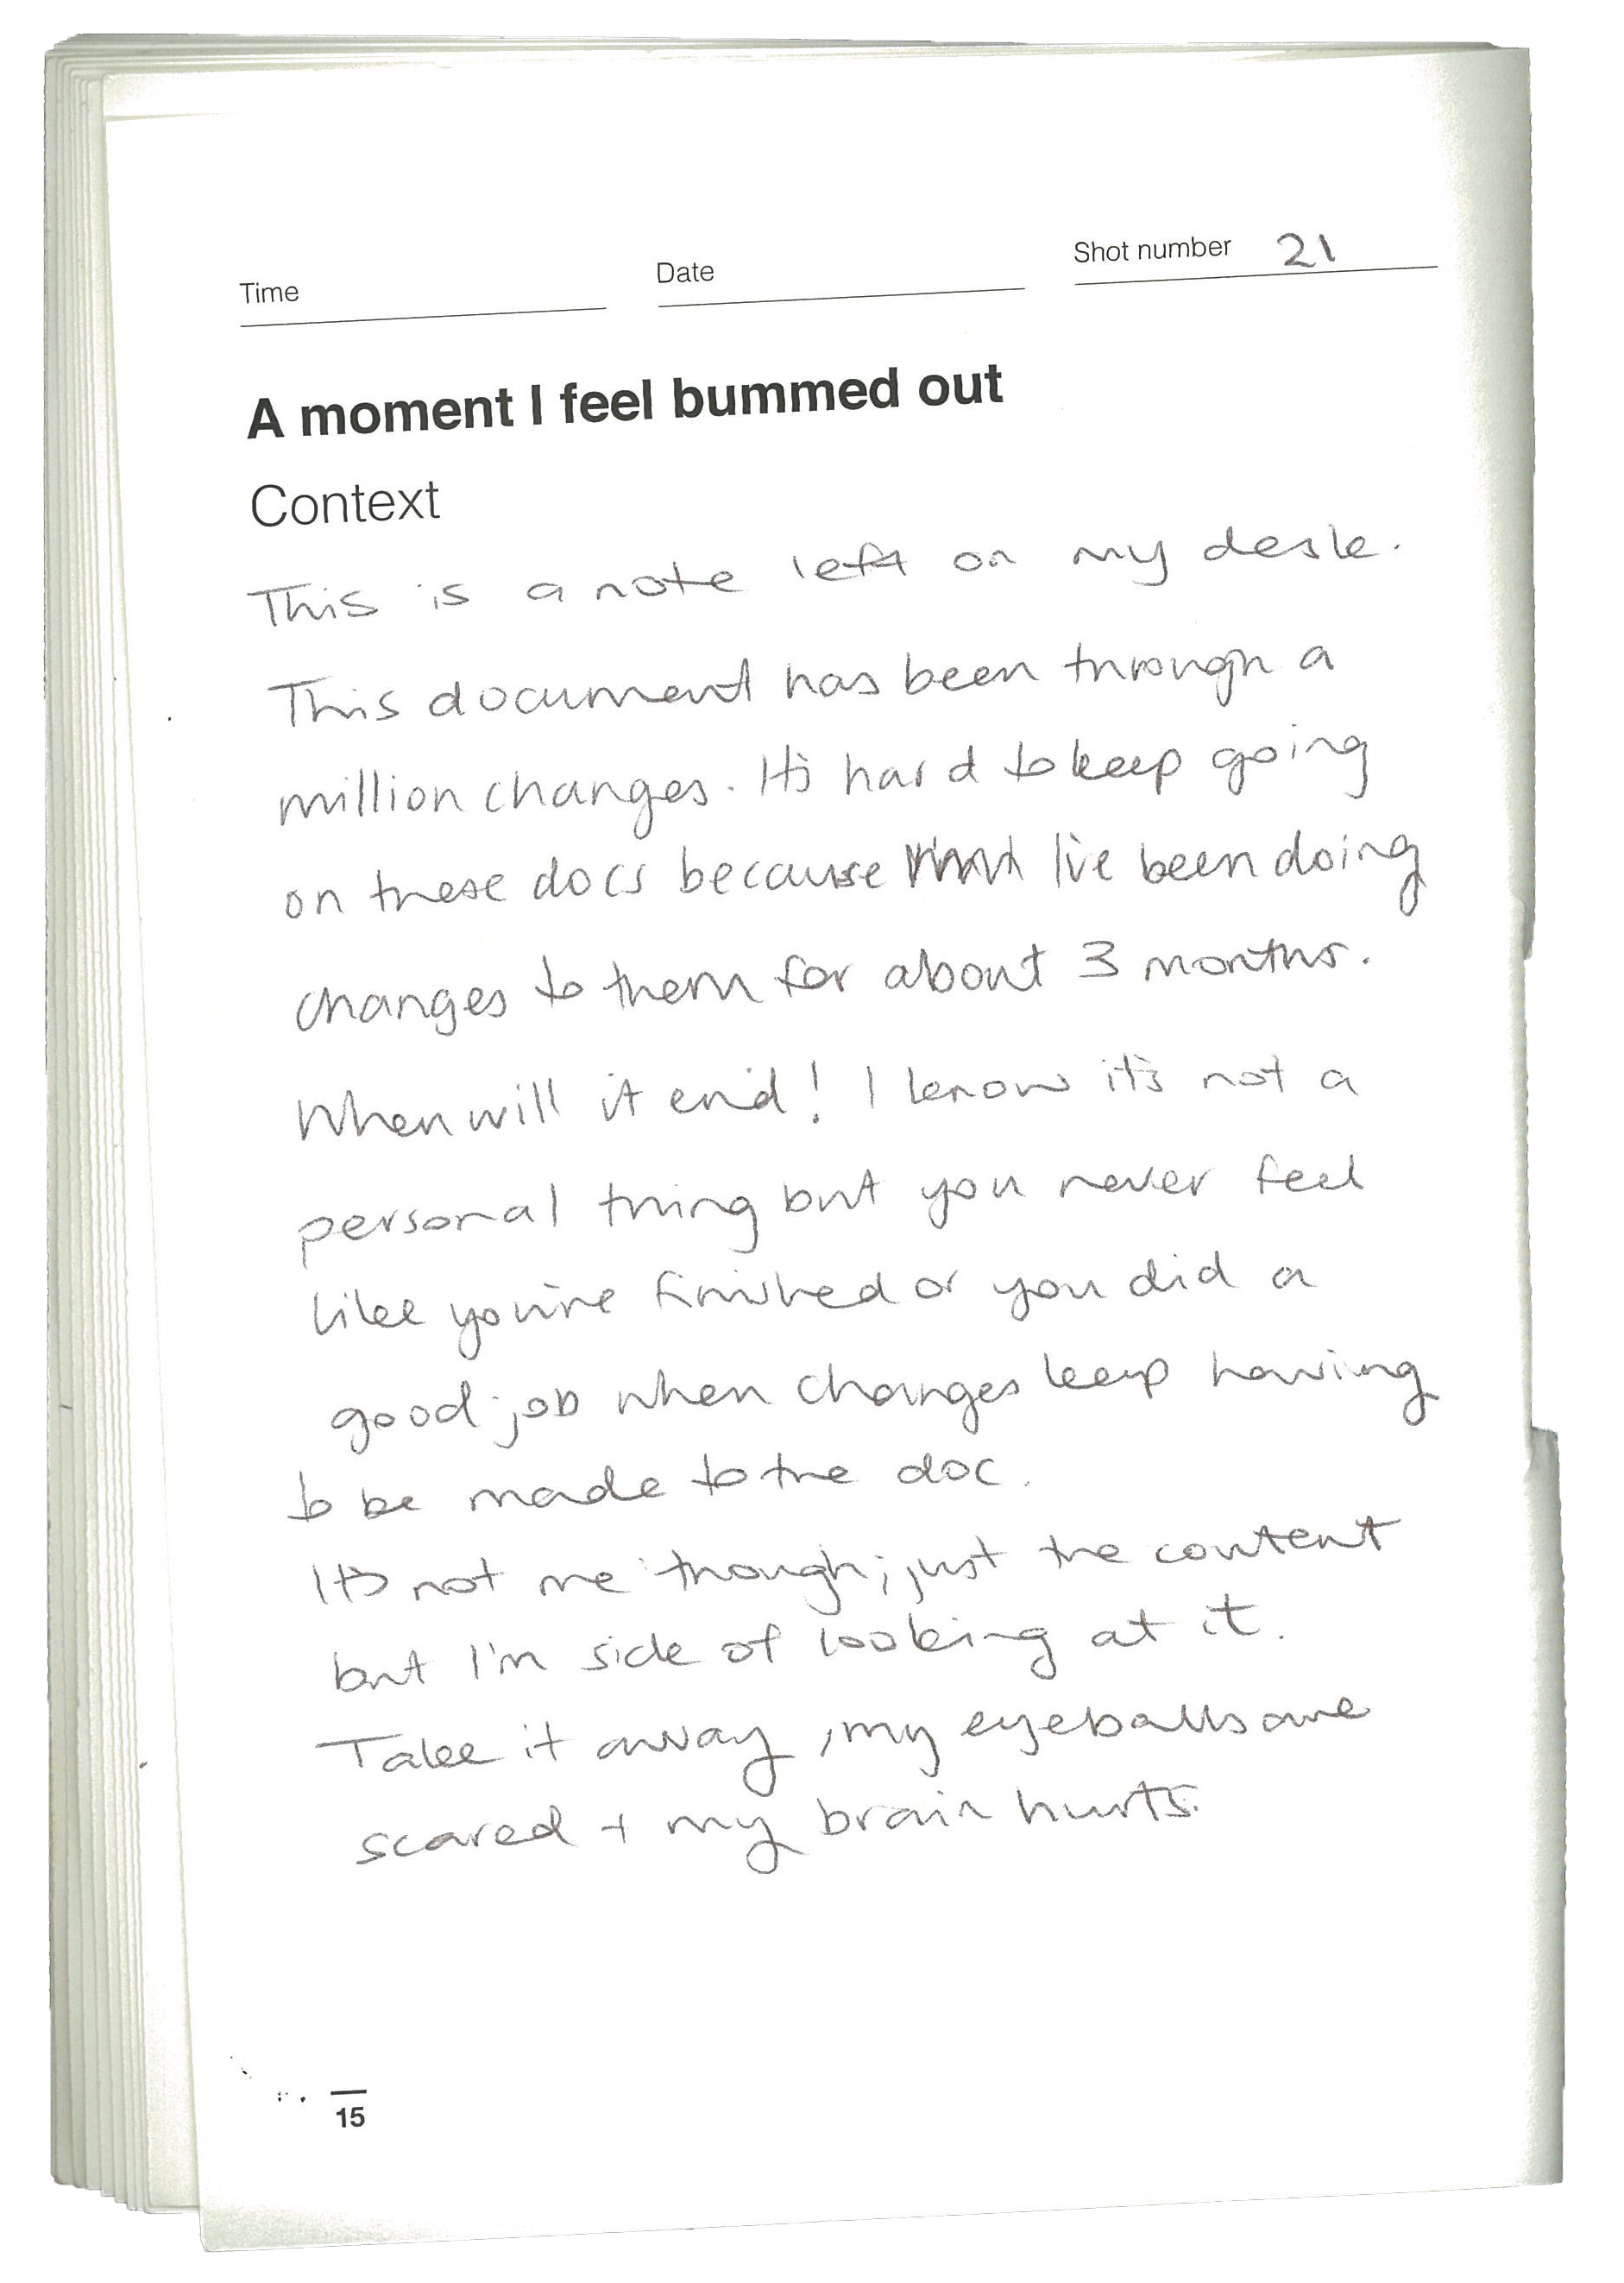 Time Date Shot number 21
A moment I feel bummed out
Context
This is a note left on my desk.
This document has been through a
million changes. It's hard to keep going
on these docs because I've been doing
changes to them for about 3 months.
When will it end! I know it's not a
personal thing but you never feel
like you're finished or you did a
good job when changes keep having
to be made to the doc.
It's not me though; just the content
but I'm sick of looking at it.
Take it away, my eyeballs are
scared + my brain hurts.
15